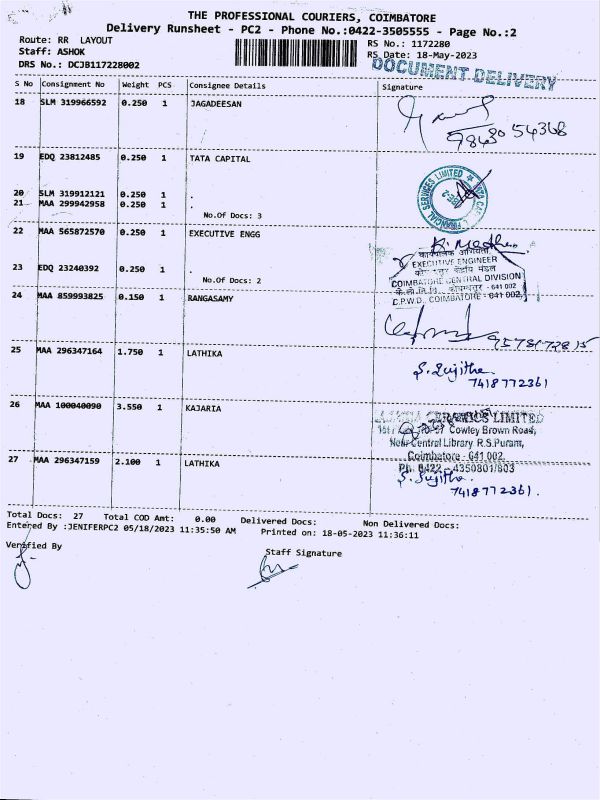 THE PROFESSIONAL COURIERS, COIMBATORE
Delivery Runsheet - PC2 - Phone No.:0422-3505555 - Page No.:2
Route: RR LAYOUT
RS No.: 1172280
Staff: ASHOK
RS Date: 18-May-2023
DRS No.: DCJB117228002
DOCUMENT DELIVERY
S No Consignment No Weight PCS Consignee Details Signature
18 SLM 319966592 0.250 1 JAGADEESAN
54368
19 EDQ 23812485 0.250 1 TATA CAPITAL
20 SLM 319912121 0.250 1 .
21 MAA 299942958 0.250 1 .
No.Of Docs: 3
22 MAA 565872570 0.250 1 EXECUTIVE ENGG
कार्यपालक अभियंता
EXECUTIVE ENGINEER
23 EDQ 23240392 0.250 1 .
COIMBATORE CENTRAL DIVISION
No.Of Docs: 2
C.P.W.D., COIMBATORE - 641 002.
24 MAA 859993825 0.150 1 RANGASAMY
25 MAA 296347164 1.750 1 LATHIKA
S. Sujitha.
7418772361
26 MAA 100040090 3.550 1 KAJARIA
CERAMICS LIMITED
Cowley Brown Road,
Near Central Library R.S.Puram,
Coimbatore - 641 002.
Ph. 0422 - 4350801/803
27 MAA 296347159 2.100 1 LATHIKA
S. Sujitha.
7418772361.
Total Docs: 27 Total COD Amt: 0.00 Delivered Docs: Non Delivered Docs:
Entered By :JENIFERPC2 05/18/2023 11:35:50 AM Printed on: 18-05-2023 11:36:11
Verified By
Staff Signature